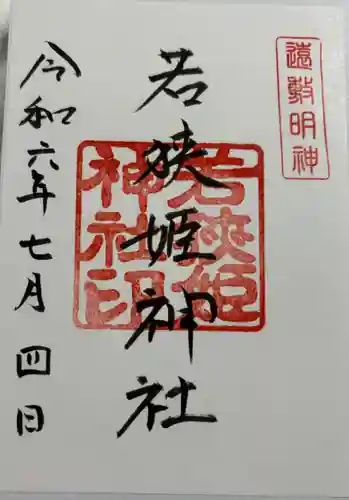 遠敷明神
若狭姫神社
若狭姫神社印
令和六年七月四日